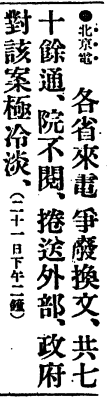 ●北京電　各省來電爭廢換文、共七
十餘通、院不閱、捲送外部、政府
對該案極冷淡、（二十一日下午二鐘）